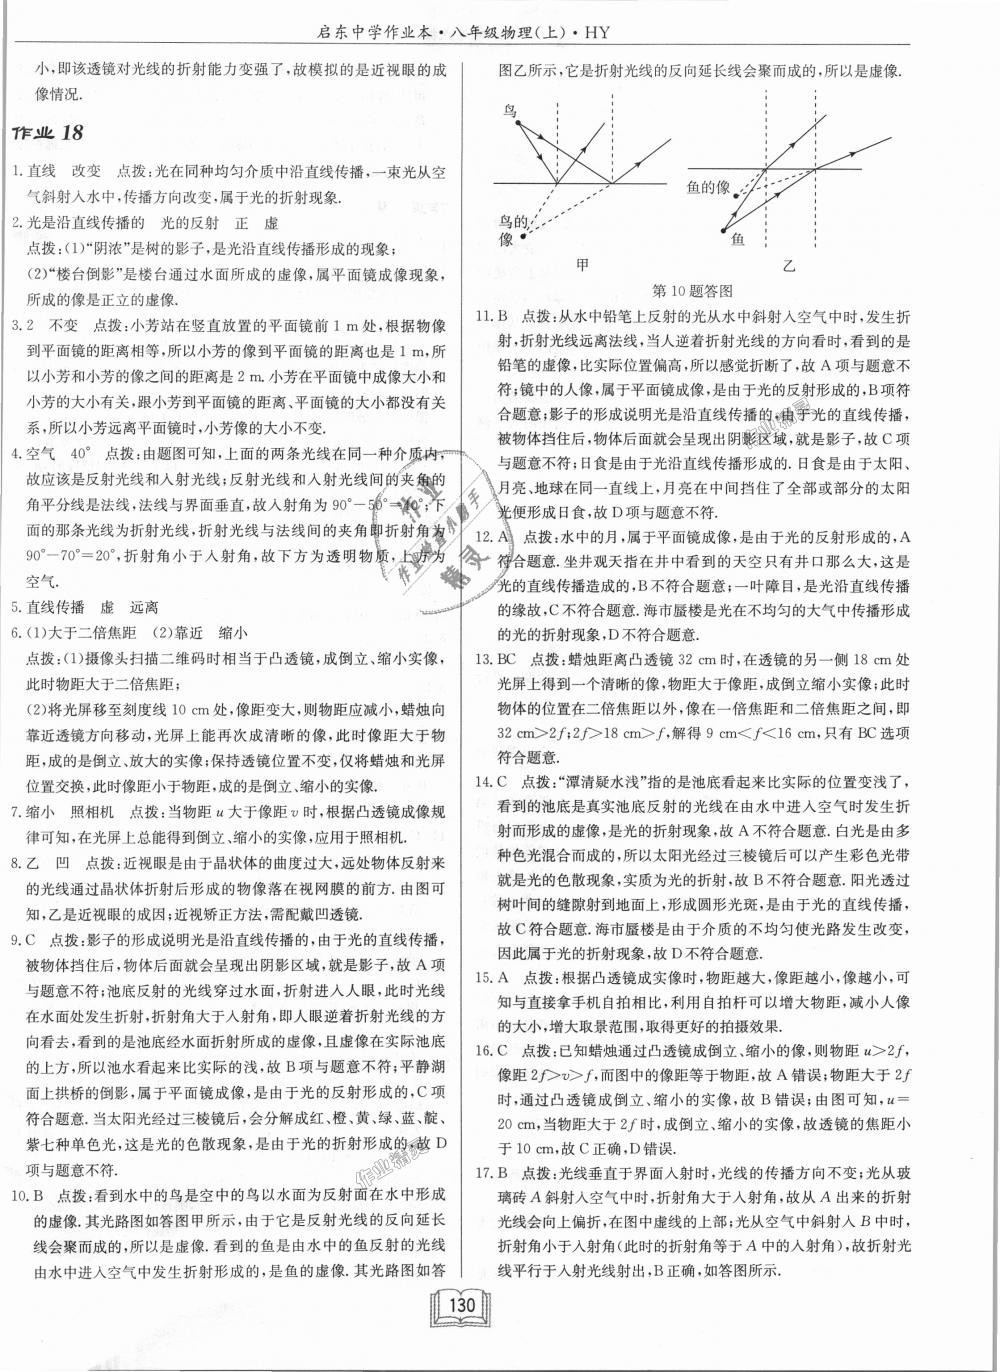 启东中学作业本·八年级物理(上)·HY
小,即该透镜对光线的折射能力变强了,故模拟的是近视眼的成
像情况.
作业 18
1. 直线　改变　点拨:光在同种均匀介质中沿直线传播,一束光从空
气斜射入水中,传播方向改变,属于光的折射现象.
2. 光是沿直线传播的　光的反射　正　虚
点拨:(1)“阴浓”是树的影子,是光沿直线传播形成的现象;
(2)“楼台倒影”是楼台通过水面所成的虚像,属平面镜成像现象,
所成的像是正立的虚像.
3. 2　不变　点拨:小芳站在竖直放置的平面镜前 1 m 处,根据物像
到平面镜的距离相等,所以小芳的像到平面镜的距离也是 1 m,所
以小芳和小芳的像之间的距离是 2 m. 小芳在平面镜中成像大小和
小芳的大小有关,跟小芳到平面镜的距离、平面镜的大小都没有关
系,所以小芳远离平面镜时,小芳像的大小不变.
4. 空气　40°　点拨:由题图可知,上面的两条光线在同一种介质内,
故应该是反射光线和入射光线;反射光线和入射光线间的夹角的
角平分线是法线,法线与界面垂直,故入射角为 90°－50°＝40°;下
面的那条光线为折射光线,折射光线与法线间的夹角即折射角为
90°－70°＝20°,折射角小于入射角,故下方为透明物质,上方为
空气.
5. 直线传播　虚　远离
6. (1)大于二倍焦距　(2)靠近　缩小
点拨:(1)摄像头扫描二维码时相当于凸透镜,成倒立、缩小实像,
此时物距大于二倍焦距;
(2)将光屏移至刻度线 10 cm 处,像距变大,则物距应减小,蜡烛向
靠近透镜方向移动,光屏上能再次成清晰的像,此时像距大于物
距,成的是倒立、放大的实像;保持透镜位置不变,仅将蜡烛和光屏
位置交换,此时像距小于物距,成的是倒立、缩小的实像.
7. 缩小　照相机　点拨:当物距 u 大于像距 v 时,根据凸透镜成像规
律可知,在光屏上总能得到倒立、缩小的实像,应用于照相机.
8. 乙　凹　点拨:近视眼是由于晶状体的曲度过大,远处物体反射来
的光线通过晶状体折射后形成的物像落在视网膜的前方. 由图可
知,乙是近视眼的成因;近视矫正方法,需配戴凹透镜.
9. C　点拨:影子的形成说明光是沿直线传播的,由于光的直线传播,
被物体挡住后,物体后面就会呈现出阴影区域,就是影子,故 A 项
与题意不符;池底反射的光线穿过水面,折射进入人眼,此时光线
在水面处发生折射,折射角大于入射角,即人眼逆着折射光线的方
向看去,看到的是池底经水面折射所成的虚像,且虚像在实际池底
的上方,所以池水看起来比实际的浅,故 B 项与题意不符;平静湖
面上拱桥的倒影,属于平面镜成像,是由于光的反射形成的,C 项
符合题意. 当太阳光经过三棱镜后,会分解成红、橙、黄、绿、蓝、靛、
紫七种单色光,这是光的色散现象,是由于光的折射形成的,故 D
项与题意不符.
10. B　点拨:看到水中的鸟是空中的鸟以水面为反射面在水中形成
的虚像. 其光路图如答图甲所示,由于它是反射光线的反向延长
线会聚而成的,所以是虚像. 看到的鱼是由水中的鱼反射的光线
由水中进入空气中发生折射形成的,是鱼的虚像. 其光路图如答
图乙所示,它是折射光线的反向延长线会聚而成的,所以是虚像.
鸟
鸟的
像
甲
鱼的像
鱼
乙
第 10 题答图
11. B　点拨:从水中铅笔上反射的光从水中斜射入空气中时,发生折
射,折射光线远离法线,当人逆着折射光线的方向看时,看到的是
铅笔的虚像,比实际位置偏高,所以感觉折断了,故 A 项与题意不
符;镜中的人像,属于平面镜成像,是由于光的反射形成的,B 项符
合题意;影子的形成说明光是沿直线传播的,由于光的直线传播,
被物体挡住后,物体后面就会呈现出阴影区域,就是影子,故 C 项
与题意不符;日食是由于光沿直线传播形成的. 日食是由于太阳、
月亮、地球在同一直线上,月亮在中间挡住了全部或部分的太阳
光便形成日食,故 D 项与题意不符.
12. A　点拨:水中的月,属于平面镜成像,是由于光的反射形成的,A
符合题意. 坐井观天指在井中看到的天空只有井口那么大,这是
光的直线传播造成的,B 不符合题意;一叶障目,是光沿直线传播
的缘故,C 不符合题意. 海市蜃楼是光在不均匀的大气中传播形成
的光的折射现象,D 不符合题意.
13. BC　点拨:蜡烛距离凸透镜 32 cm 时,在透镜的另一侧 18 cm 处
光屏上得到一个清晰的像,物距大于像距,成倒立缩小实像;此时
物体的位置在二倍焦距以外,像在一倍焦距和二倍焦距之间,即
32 cm＞2f;2f＞18 cm＞f,解得 9 cm＜f＜16 cm,只有 BC 选项
符合题意.
14. C　点拨:“潭清疑水浅”指的是池底看起来比实际的位置变浅了,
看到的池底是真实池底反射的光线在由水中进入空气时发生折
射而形成的虚像,是光的折射现象,故 A 不符合题意. 白光是由多
种色光混合而成的,所以太阳光经过三棱镜后可以产生彩色光带
就是光的色散现象,实质为光的折射,故 B 不符合题意. 阳光透过
树叶间的缝隙射到地面上,形成圆形光斑,是由于光的直线传播,
故 C 符合题意. 海市蜃楼是由于介质的不均匀使光路发生改变,
因此属于光的折射现象,故 D 不符合题意.
15. A　点拨:根据凸透镜成实像时,物距越大,像距越小,像越小,可
知与直接拿手机自拍相比,利用自拍杆可以增大物距,减小人像
的大小,增大取景范围,取得更好的拍摄效果.
16. C　点拨:已知蜡烛通过凸透镜成倒立、缩小的像,则物距 u＞2f,
像距 2f＞v＞f,而图中的像距等于物距,故 A 错误;物距大于 2f
时,通过凸透镜成倒立、缩小的实像,故 B 错误;由图可知,u＝
20 cm,当物距大于 2f 时,成倒立、缩小的实像,故透镜的焦距小
于 10 cm,故 C 正确,D 错误.
17. B　点拨:光线垂直于界面入射时,光线的传播方向不变;光从玻
璃砖 A 斜射入空气中时,折射角大于入射角,故从 A 出来的折射
光线会向上偏折,在图中虚线的上部;光从空气中斜射入 B 中时,
折射角小于入射角(此时的折射角等于 A 中的入射角),故折射光
线平行于入射光线射出,B 正确,如答图所示.
作业
作业检查小助手
精灵
作业精灵
作业精灵
130